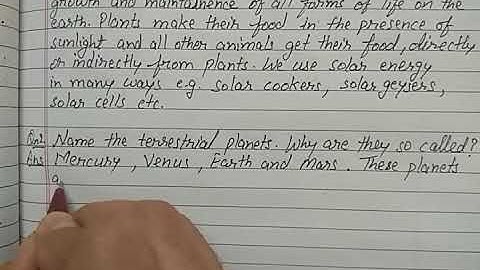 growth and maintainence of all forms of life on the
earth. Plants make their food in the presence of
sunlight and all other animals get their food, directly
or indirectly from plants. We use solar energy
in many ways e.g. solar cookers, solar geysers,
solar cells etc.
Name the terrestrial planets. Why are they so called?
Ans Mercury, Venus, Earth and Mars. These planets
a